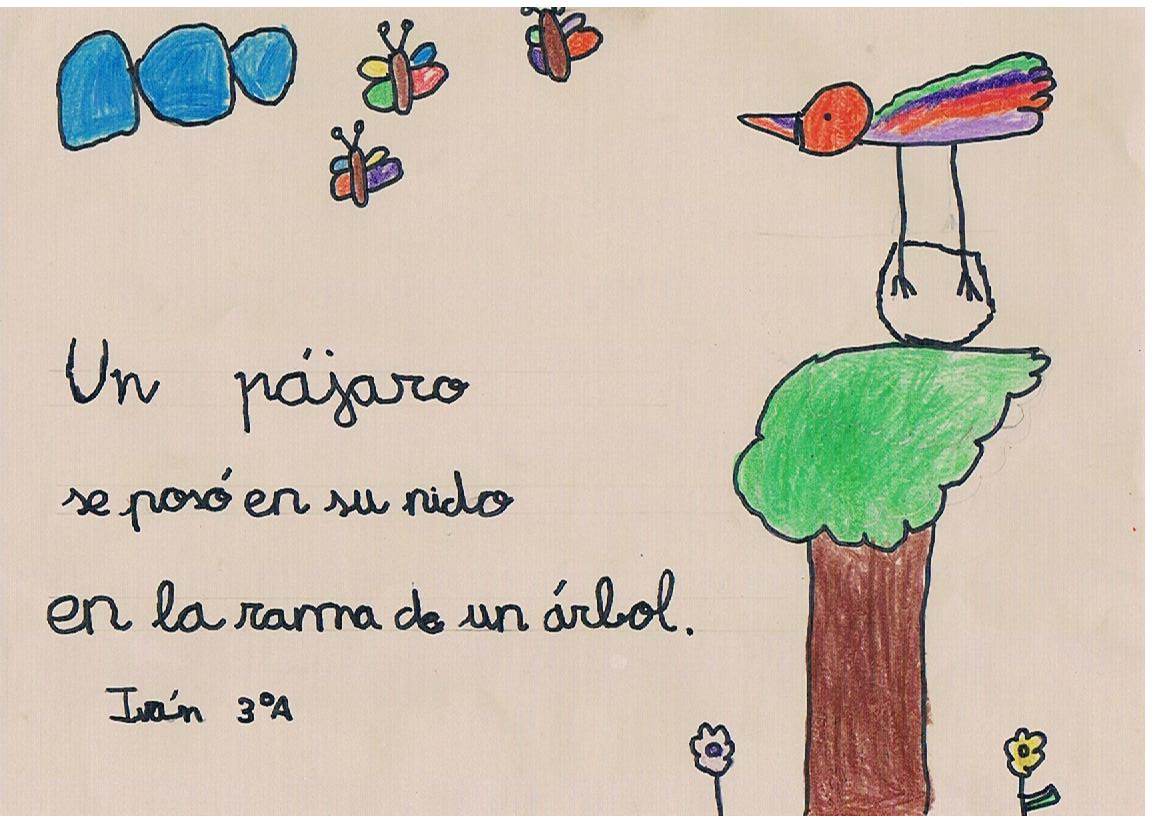 Un pájaro
se posó en su nido
en la rama de un árbol.
Iván 3ºA